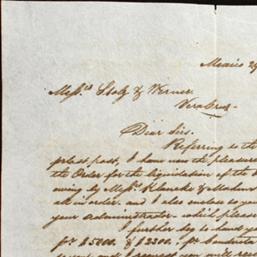 Mexico 29
Messrs Stolz & Werner
Veracruz.
Dear Sirs.
Referring to the
post, I have now the pleasure
the Order for the liquidation of the
owing by Messrs &
all in order. and I also enclose to you
your administrador. which please
I further beg to hand you
for $5000. & $2200. for
and I request you will